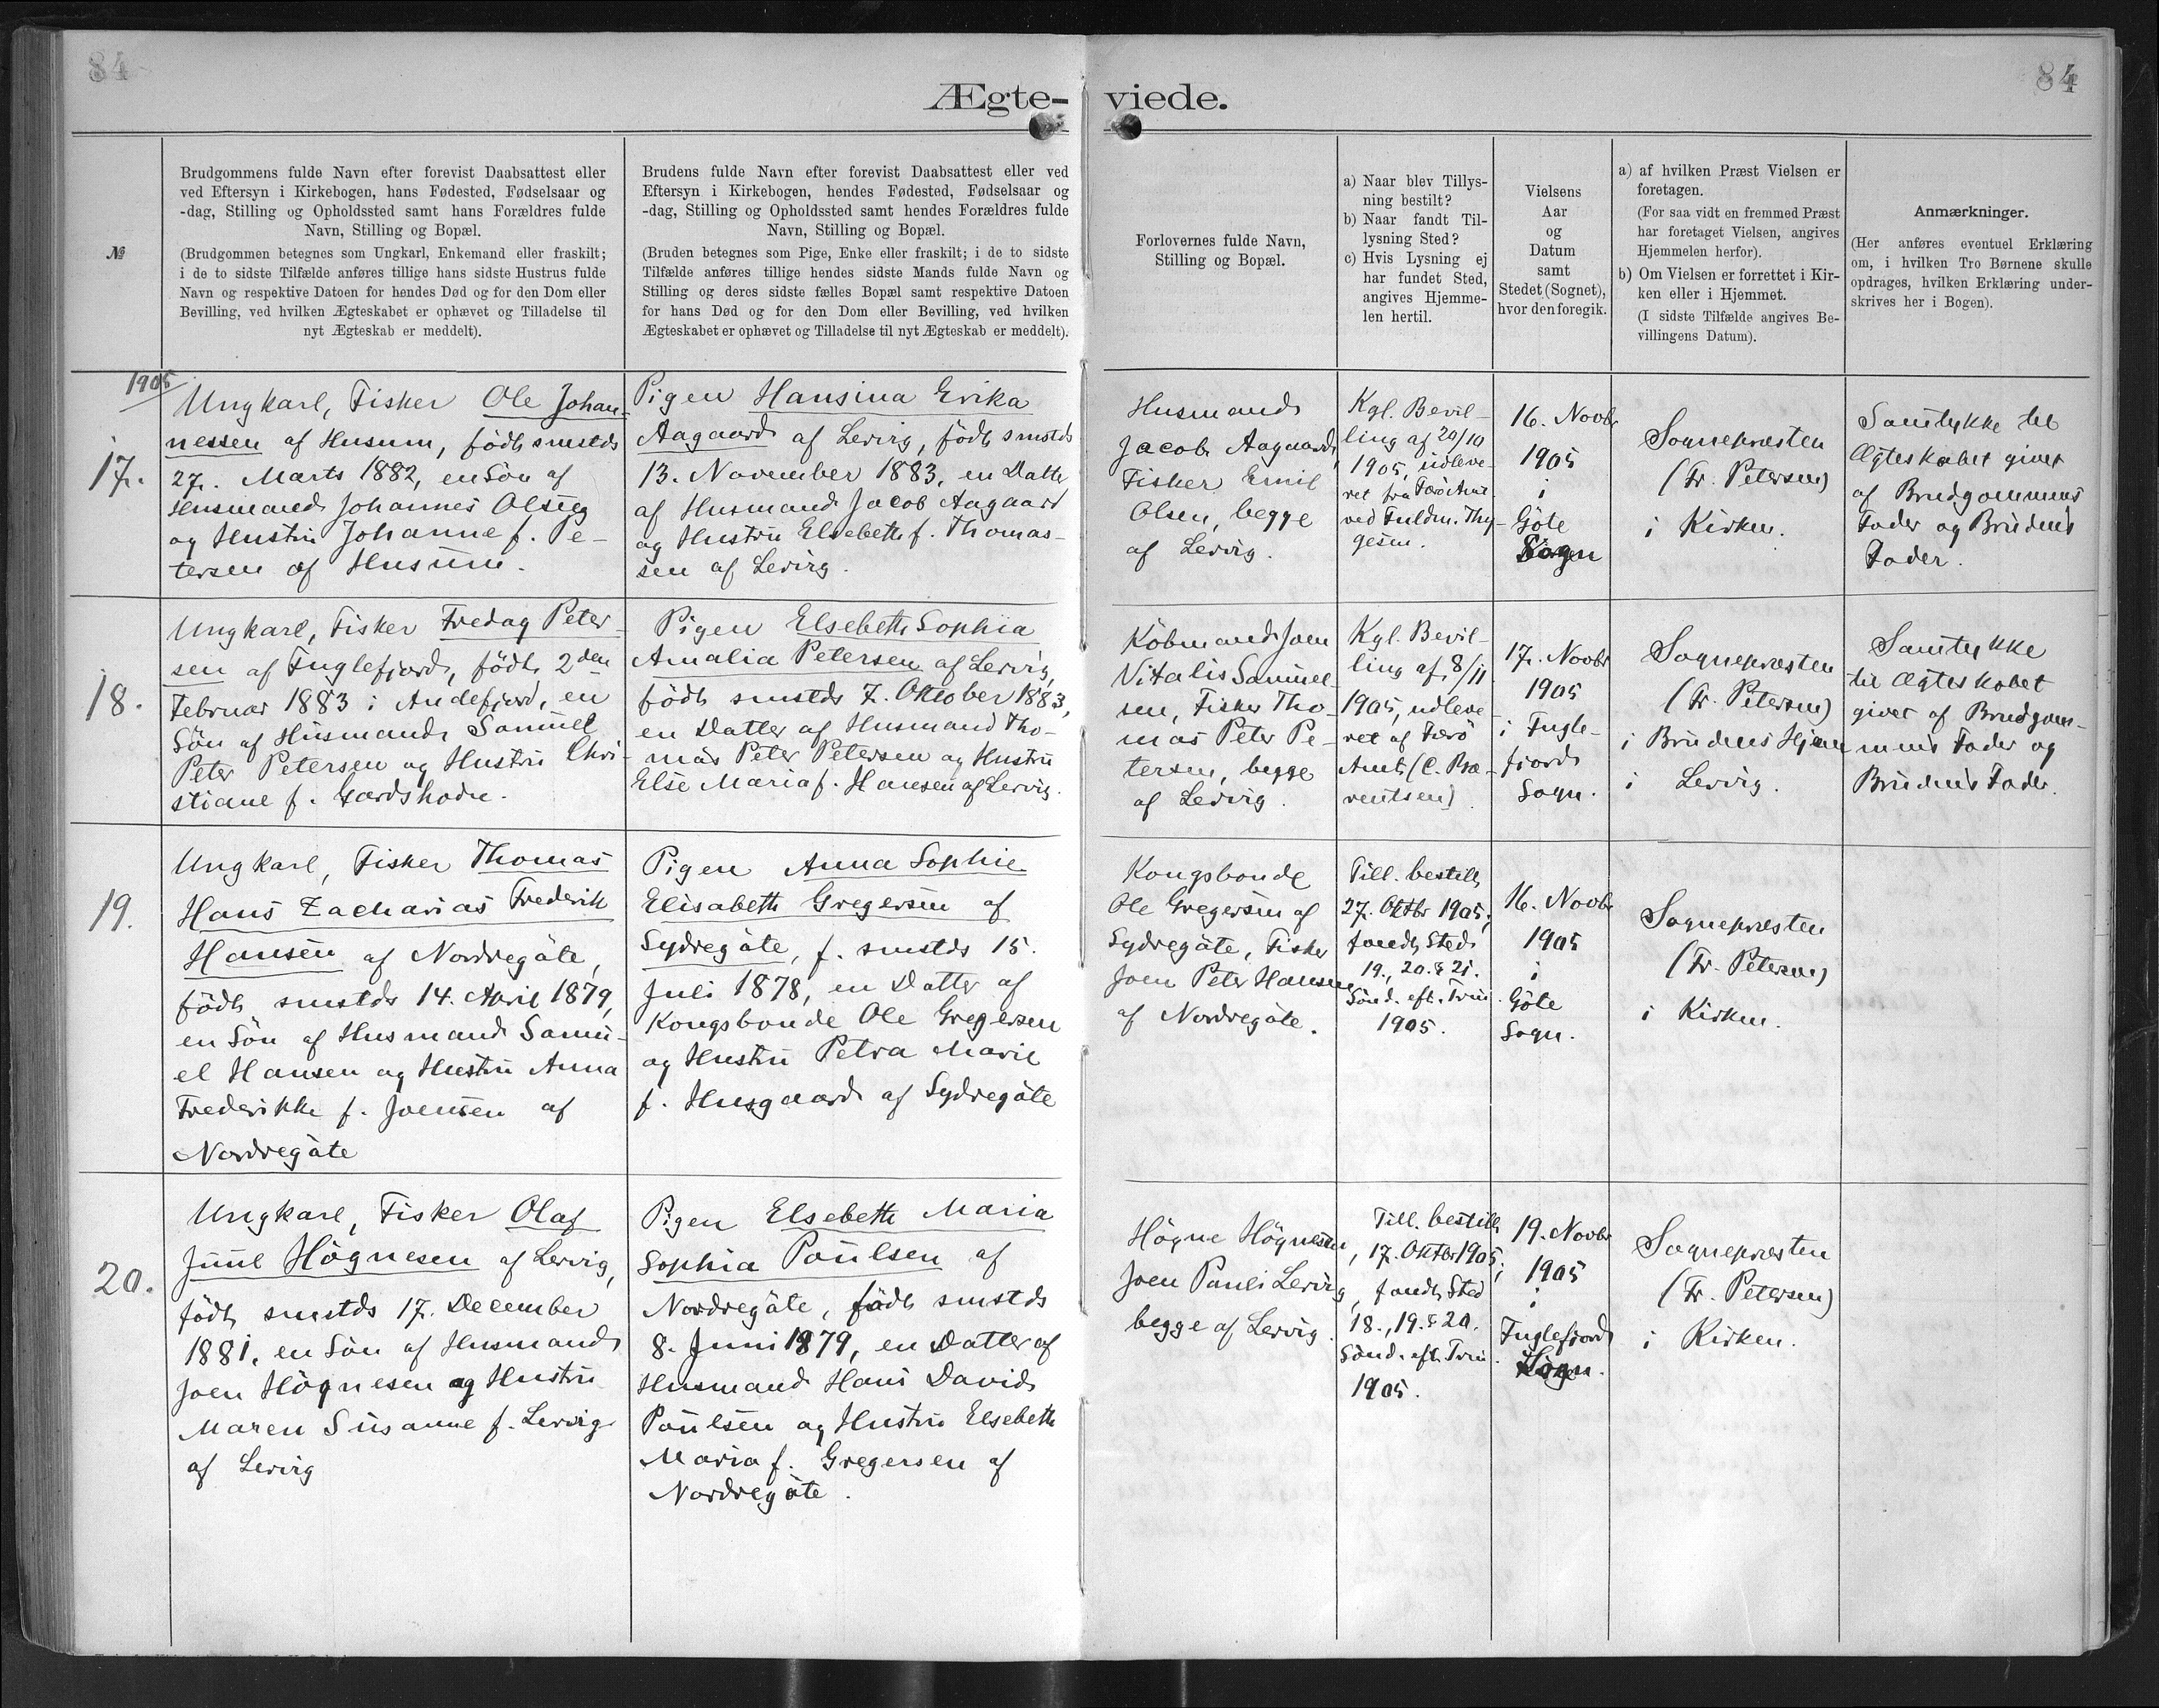 84
84
Ægte-
viede.
№
Brudgommens fulde Navn efter forevist Daabsattest eller
ved Eftersyn i Kirkebogen, hans Fødested, Fødselsaar og
-dag, Stilling og Opholdssted samt hans Forældres fulde
Navn, Stilling og Bopæl.
(Brudgommen betegnes som Ungkarl, Enkemand eller fraskilt;
i de to sidste Tilfælde anføres tillige hans sidste Hustrus fulde
Navn og respektive Datoen for hendes Død og for den Dom eller
Bevilling, ved hvilken Ægteskabet er ophævet og Tilladelse til
nyt Ægteskab er meddelt).
Brudens fulde Navn efter forevist Daabsattest eller ved
Eftersyn i Kirkebogen, hendes Fødested, Fødselsaar og
-dag, Stilling og Opholdssted samt hendes Forældres fulde
Navn, Stilling og Bopæl.
(Bruden betegnes som Pige, Enke eller fraskilt; i de to sidste
Tilfælde anføres tillige hendes sidste Mands fulde Navn og
Stilling og deres sidste fælles Bopæl samt respektive Datoen
for hans Død og for den Dom eller Bevilling, ved hvilken
Ægteskabet er ophævet og Tilladelse til nyt Ægteskab er meddelt).
Forlovernes fulde Navn,
Stilling og Bopæl.
a) Naar blev Tillys-
ning bestilt?
b) Naar fandt Til-
lysning Sted?
c) Hvis Lysning ej
har fundet Sted,
angives Hjemme-
len hertil.
Vielsens
Aar
og
Datum
samt
Stedet (Sognet),
hvor den foregik.
a) af hvilken Præst Vielsen er
foretagen.
(For saa vidt en fremmed Præst
har foretaget Vielsen, angives
Hjemmelen herfor).
b) Om Vielsen er forrettet i Kir-
ken eller i Hjemmet.
(I sidste Tilfælde angives Be-
villingens Datum).
Anmærkninger.
(Her anføres eventuel Erklæring
om, i hvilken Tro Børnene skulle
opdrages, hvilken Erklæring under-
skrives her i Bogen).
1905
17.
Ungkarl, Fisker Ole Johan-
nessen af Husum, født smstds
27. Marts 1882, en Søn af
Husmand Johannes Olsen
og Hustru Johanne f. Pe-
tersen af Husum.
Pigen Hansina Erika
Aagaard af Lervig, født smstds
13. November 1883, en Datter
af Husmand Jacob Aagaard
og Hustru Elsebeth f. Thomas-
sen af Lervig.
Husmand
Jacob Aagaard,
Fisker Emil
Olsen, begge
af Lervig.
Kgl. Bevil-
ling af 20/10
1905, udleve-
ret fra Færø Amt
ved Fuldm. Thy-
gesen.
16. Novbr
1905
i
Göte
Sogn
Sognepræsten
(Fr. Petersen)
i Kirken.
Samtykke til
Ægteskabet givet
af Brudgommens
Fader og Brudens
Fader.
18.
Ungkarl, Fisker Fredag Peter-
sen af Fuglefjord, født 2den
Februar 1883 i Andefjord, en
Søn af Husmand Samuel
Peter Petersen og Hustru Chri-
stiane f. Gardshodn.
Pigen Elsebeth Sophia
Amalia Petersen af Lervig,
født smstds 7. Oktober 1883,
en Datter af Husmand Tho-
mas Peter Petersen og Hustru
Else Maria f. Hansen af Lervig.
Købmand Joen
Vitalis Samuel-
sen, Fisker Tho-
mas Peter Pe-
tersen, begge
af Lervig.
Kgl. Bevil-
ling af 8/11
1905, udleve-
ret af Færø
Amt (C. Bæ-
rentsen)
17. Novbr
1905
i Fugle-
fjord
Sogn.
Sognepræsten
(Fr. Petersen)
i Brudens Hjem
i Lervig.
Samtykke
til Ægteskabet
givet af Brudgom-
mens Fader og
Brudens Fader.
19.
Ungkarl, Fisker Thomas
Hans Zacharias Frederik
Hansen af Nordregöte,
født smstds 14. April 1879,
en Søn af Husmand Samu-
el Hansen og Hustru Anna
Frederikke f. Joensen af
Nordregöte
Pigen Anna Sophie
Elisabeth Gregersen af
Sydregöte, f. smstds 15.
Juli 1878, en Datter af
Kongsbonde Ole Gregersen
og Hustru Petra Marie
f. Husgaard af Sydregöte
Kongsbonde
Ole Gregersen af
Sydregöte, Fisker
Joen Peter Hansen
af Nordregöte.
Till. bestilt
27. Oktbr 1905,
fandt Sted
19., 20. & 21.
Sönd. eft. Trin.
1905.
16. Novbr
1905
i
Göte
Sogn.
Sognepræsten
(Fr. Petersen)
i Kirken.
20.
Ungkarl, Fisker Olaf
Juul Högnesen af Lervig,
født smstds 17. December
1881, en Søn af Husmand
Joen Högnesen og Hustru
Maren Susanne f. Lervig
af Lervig
Pigen Elsebeth Maria
Sophia Poulsen af
Nordregöte, født smstds
8. Juni 1879, en Datter af
Husmand Hans David
Poulsen og Hustru Elsebeth
Maria f. Gregersen af
Nordregöte.
Högne Högnesen,
Joen Pauli Lervig,
begge af Lervig.
Till. bestilt
17. Oktbr 1905,
fandt Sted
18., 19. & 20.
Sönd. eft. Trin.
1905.
19. Novbr
1905
i
Fuglefjord
Sogn.
Sognepræsten
(Fr. Petersen)
i Kirken.